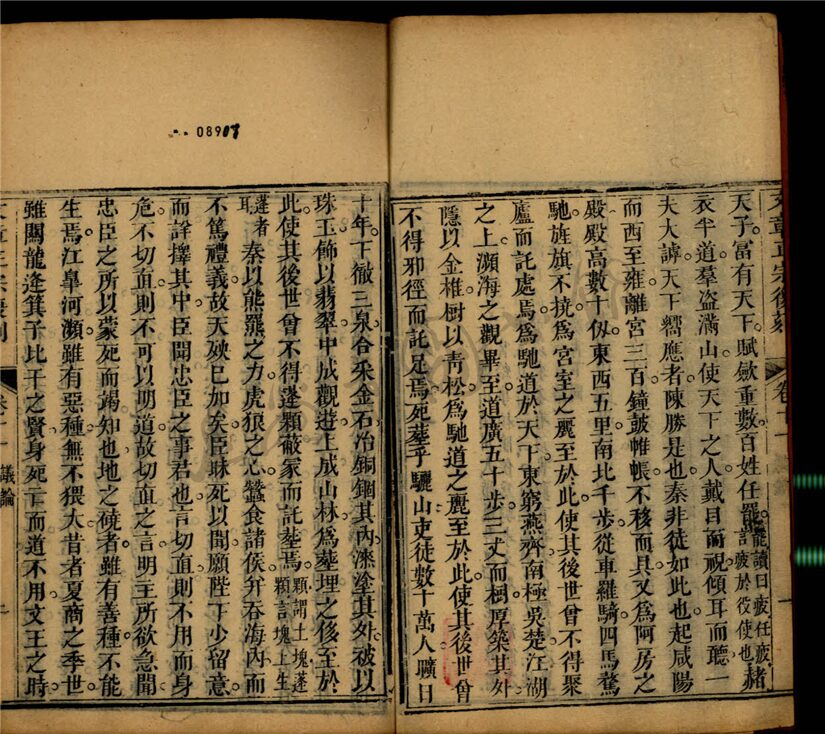 文章正宗復刻 卷十一 一
天子富有天下賦斂重數百姓任罷罷讀曰疲任疲言疲於役使也赭
衣半道羣盜滿山使天下之人戴目而視傾耳而聽一
夫大謼天下嚮應者陳勝是也秦非徒如此也起咸陽
而西至雍離宮三百鐘皷帷帳不移而具又為阿房之
殿殿高數十仭東西五里南北千步從車羅騎四馬騖
馳旌旗不撓為宮室之麗至於此使其後世曾不得聚
廬而託處焉為馳道於天下東窮燕齊南極吳楚江湖
之上瀕海之觀畢至道廣五十步三丈而樹厚築其外
隱以金椎樹以青松為馳道之麗至於此使其後世曾
不得邪徑而託足焉死葬乎驪山吏徒數十萬人曠日
08907
十年下徹三泉合采金石冶銅錮其內漆塗其外被以
珠玉飾以翡翠中成觀遊上成山林為葬埋之侈至於
此使其後世曾不得蓬顆蔽冢而託葬焉顆謂土塊蓬顆言塊上生
蓬者耳秦以熊羆之力虎狼之心蠶食諸侯并吞海內而
不篤禮義故天殃已加矣臣昧死以聞願陛下少留意
而詮擇其中臣聞忠臣之事君也言切直則不用而身
危不切直則不可以明道故切直之言明主所欲急聞
忠臣之所以蒙死而竭知也地之磽者雖有善種不能
生焉江臯河瀕雖有惡種無不猥大昔者夏商之季世
雖關龍逄箕子比干之賢身死亡而道不用文王之時
文章正宗復刻 卷十一 議論 二